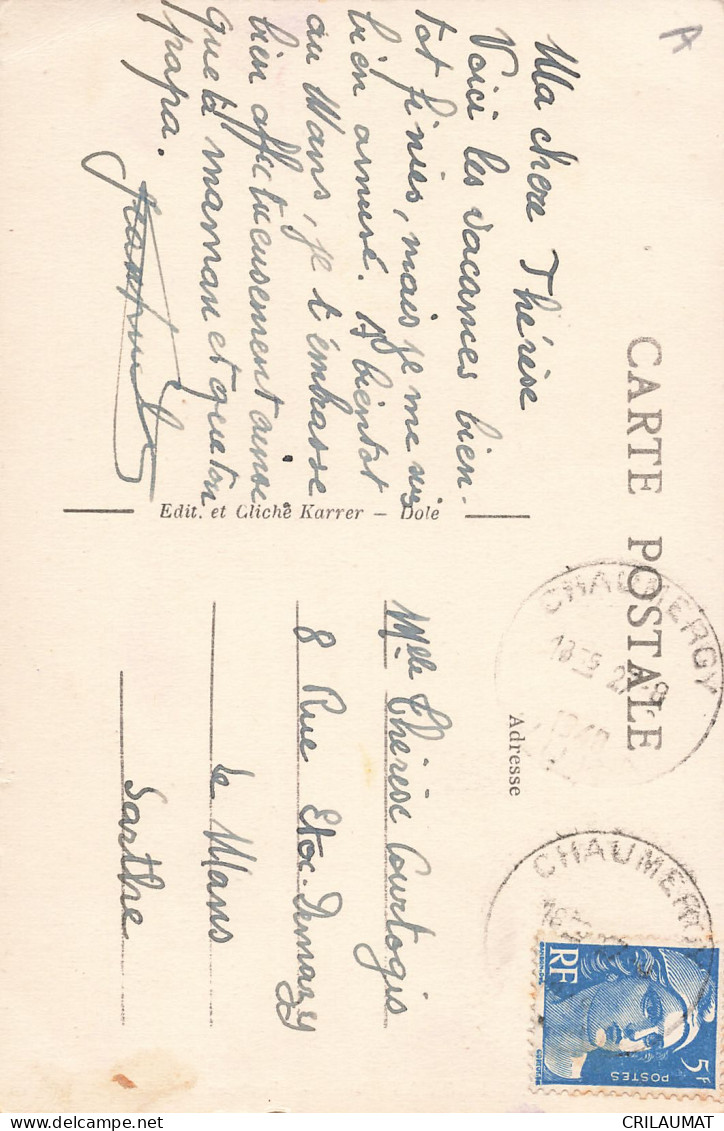 A
Ma chère Thérèse
Voici les vacances bien-
tot finies, mais je me suis
bien amusé. A bientot
au Mans, je t'embrasse
bien affectueusement ainsi
que ta maman et que ton
papa.
CARTE POSTALE
Edit. et Cliché Karrer – Dole
Adresse
Mlle Thérèse Courtogis
8 Rue Etoc-Demazy
Le Mans
Sarthe
CHAUMERGY
CHAUMERGY
RF
5F
POSTES
CRILAUMAT